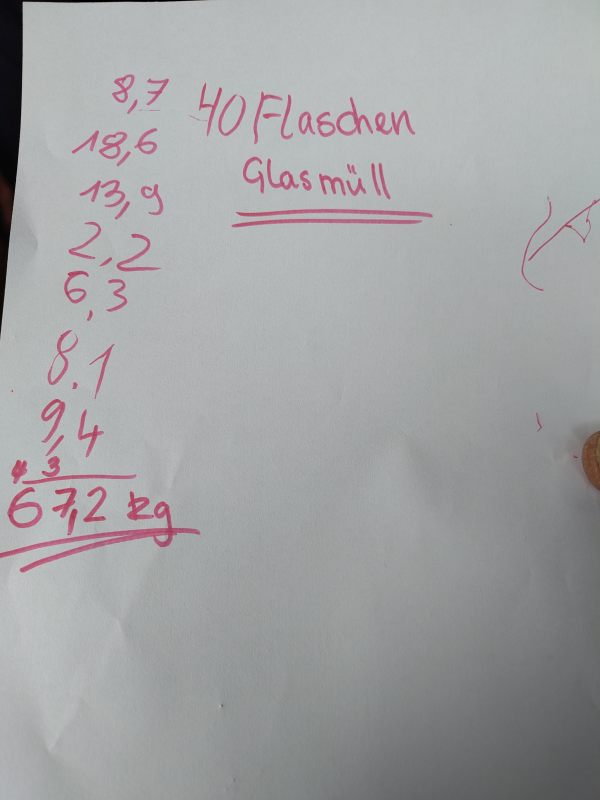 8,7
18,6
13,9
2,2
6,3
8.1
9,4
4 3
67,2 kg
40 Flaschen
Glasmüll